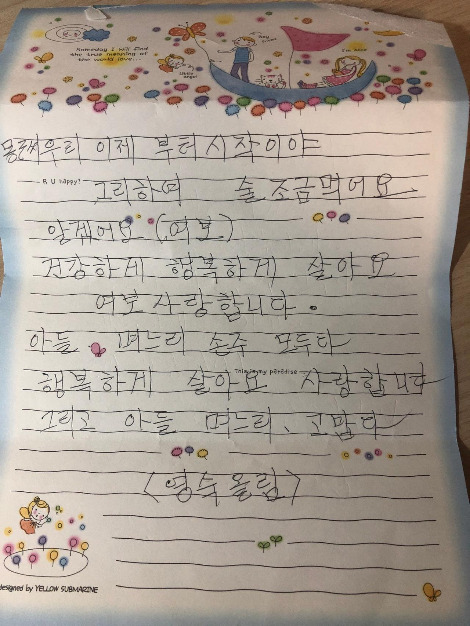 Someday I will find
the true meaning of
the world love...
Hey
I'm here
little
angel
우리 이제 부터 시작이야
R U happy?
그리하여 술 조금먹어요
알게어요 (여보)
건강하게 행복하게 살아요
여보 사랑합니다.
아들 며느리 손주 모두다
This is my paradise
행복하게 살아요 사랑합니다
그리고 아들 며느리. 고맙다
<영숙올림>
designed by YELLOW SUBMARINE